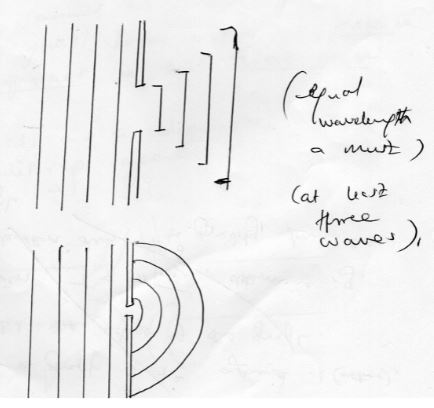 (equal
wavelength
a must)
(at least
three
waves).